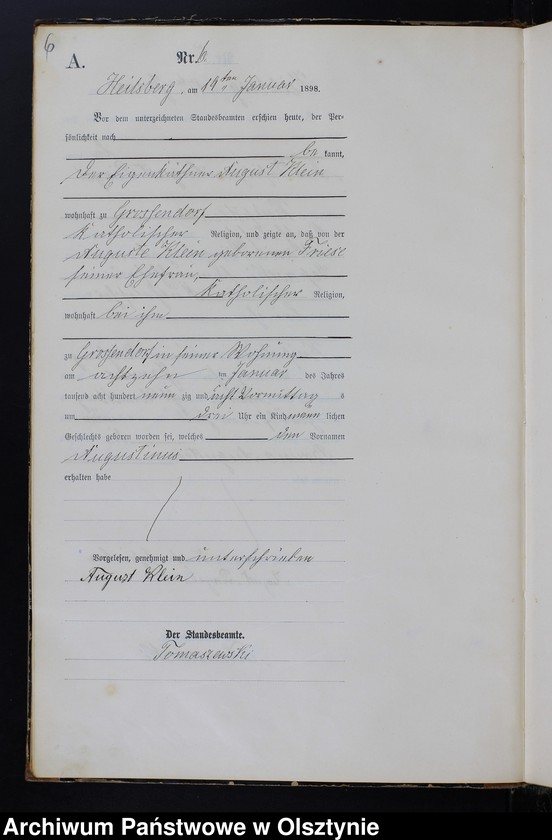 6
A.
Nr. 6.
Heilsberg, am 19ten Januar 1898.
Vor dem unterzeichneten Standesbeamten erschien heute, der Per-
sönlichkeit nach
be kannt,
der Eigenkäthner August Klein
wohnhaft zu Grossendorf
katholischer Religion, und zeigte an, daß von der
Auguste Klein geborenen Friese
seiner Ehefrau,
katholischer Religion,
wohnhaft bei ihm
zu Grossendorf in seiner Wohnung
am achtzehn ten Januar des Jahres
tausend acht hundert neun zig und acht Vormittag s
um drei Uhr ein Kind männ lichen
Geschlechts geboren worden sei, welches den Vornamen
Augustinus
erhalten habe
Vorgelesen, genehmigt und unterschrieben
August Klein
Der Standesbeamte.
Tomaszewski
Archiwum Państwowe w Olsztynie